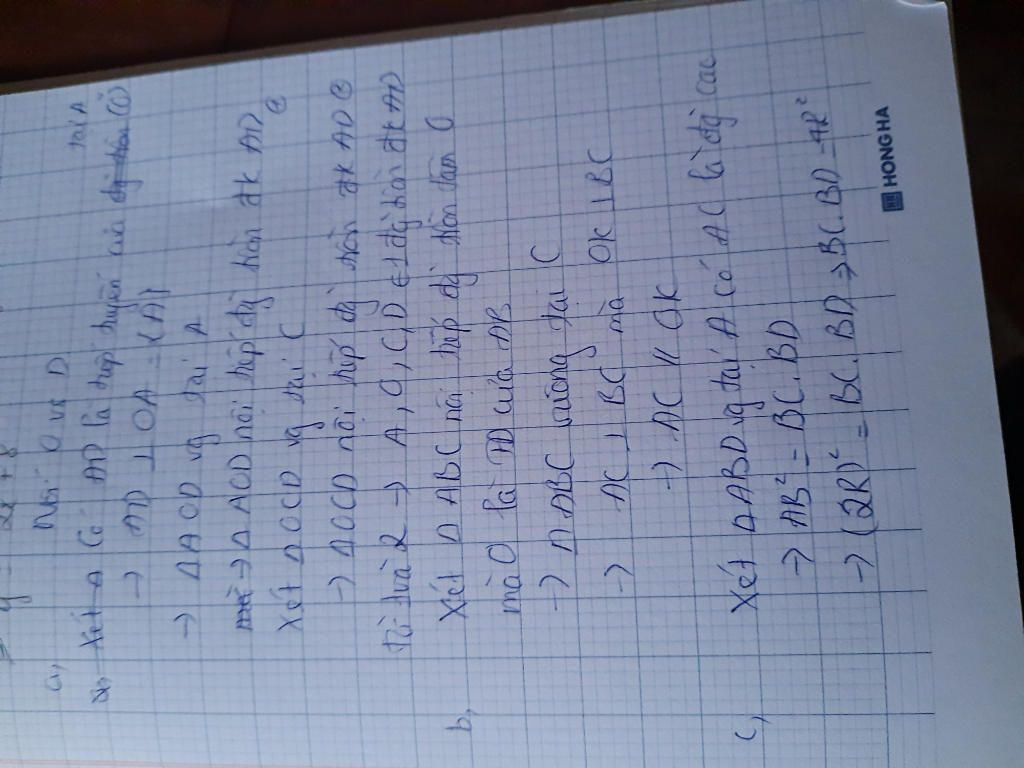 y = 2x + 8
a, Nối O và D
Xét A có AD là tiếp tuyến của (O) tại A
→ AD ⊥ OA = {A}
→ Δ AOD vg tại A
→ Δ AOD nội tiếp đg tròn đk AD ①
Xét Δ OCD vg tại C
→ Δ OCD nội tiếp đg tròn đk AD ②
từ 1 và 2 → A, O, C, D ∈ 1 đg tròn đk AD
b, Xét Δ ABC nội tiếp đg tròn tâm O
mà O là TĐ của AB
→ Δ ABC vuông tại C
→ AC ⊥ BC mà OK ⊥ BC
→ AC // OK
c, Xét Δ ABD vg tại A có AC là đg cao
→ AB² = BC. BD
→ (2R)² = BC. BD → BC. BD = 4R²
HONG HA